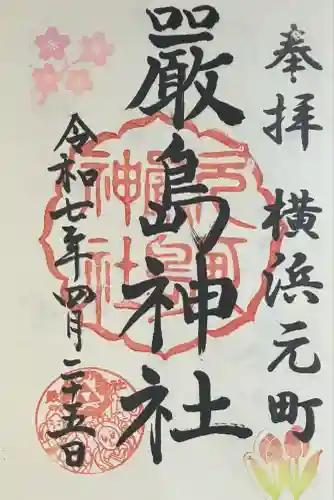 奉拝 横浜元町
嚴島神社
令和七年四月二十五日